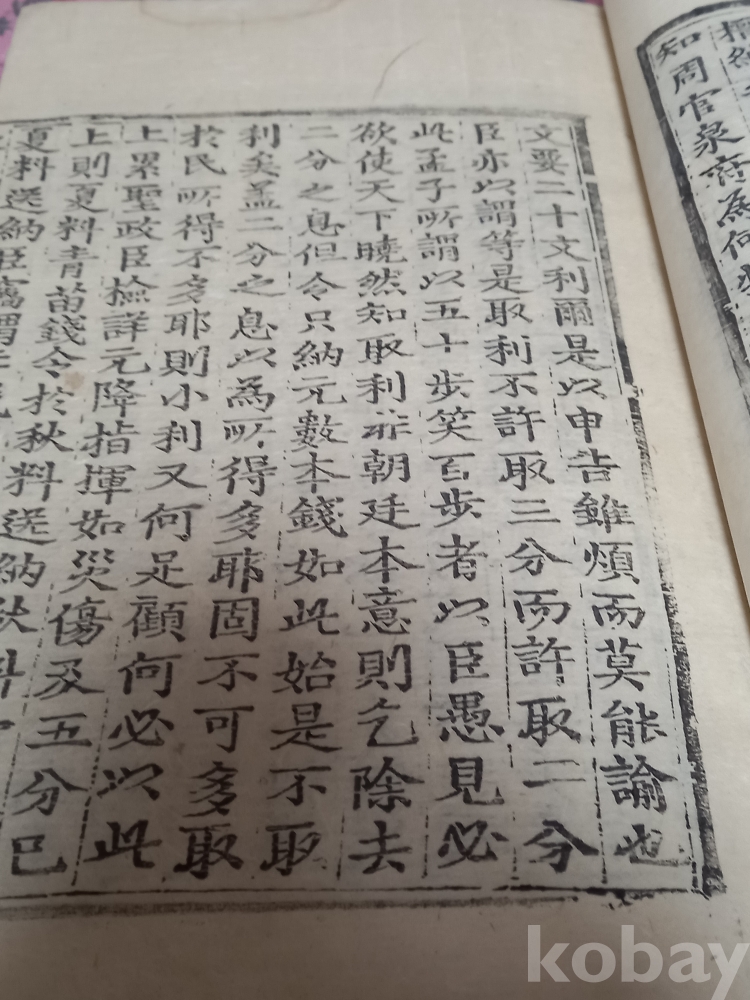 知周官泉府為何
文要二十文利爾是以申告雖煩而莫能諭也
臣亦以謂等是取利不許取三分而許取二分
此孟子所謂以五十步笑百步者以臣愚見必
欲使天下曉然知取利非朝廷本意則乞除去
二分之息但令只納元數本錢如此始是不取
利矣盖二分之息以為所得多耶固不可多取
於民所得不多耶則小利又何足顧何必以此
上累聖政臣檢詳元降指揮如災傷及五分已
上則夏料青苗錢令於秋料送納秋料
夏料送納臣竊謂
kobay